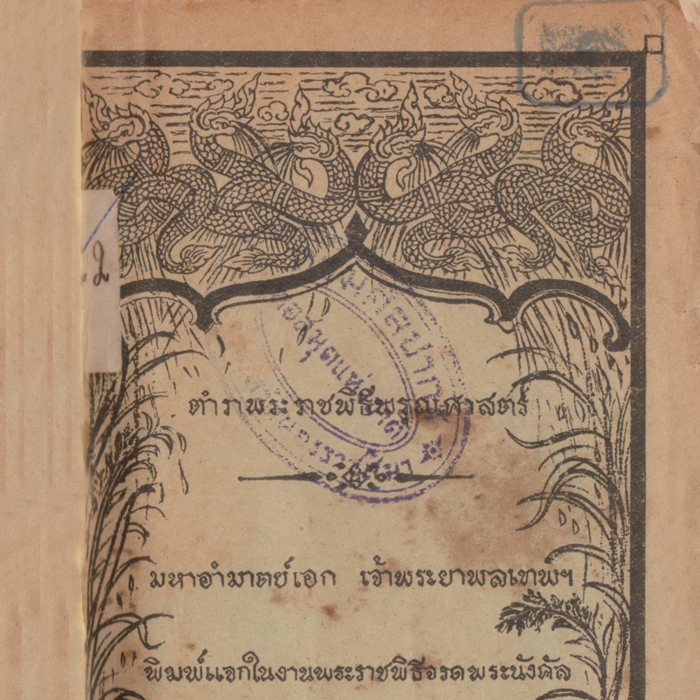 ตำราพระราชพิธีพรุณศาสตร์
มหาอำมาตย์เอก เจ้าพระยาพลเทพฯ
พิมพ์แจกในงานพระราชพิธีจรดพระนังคัล